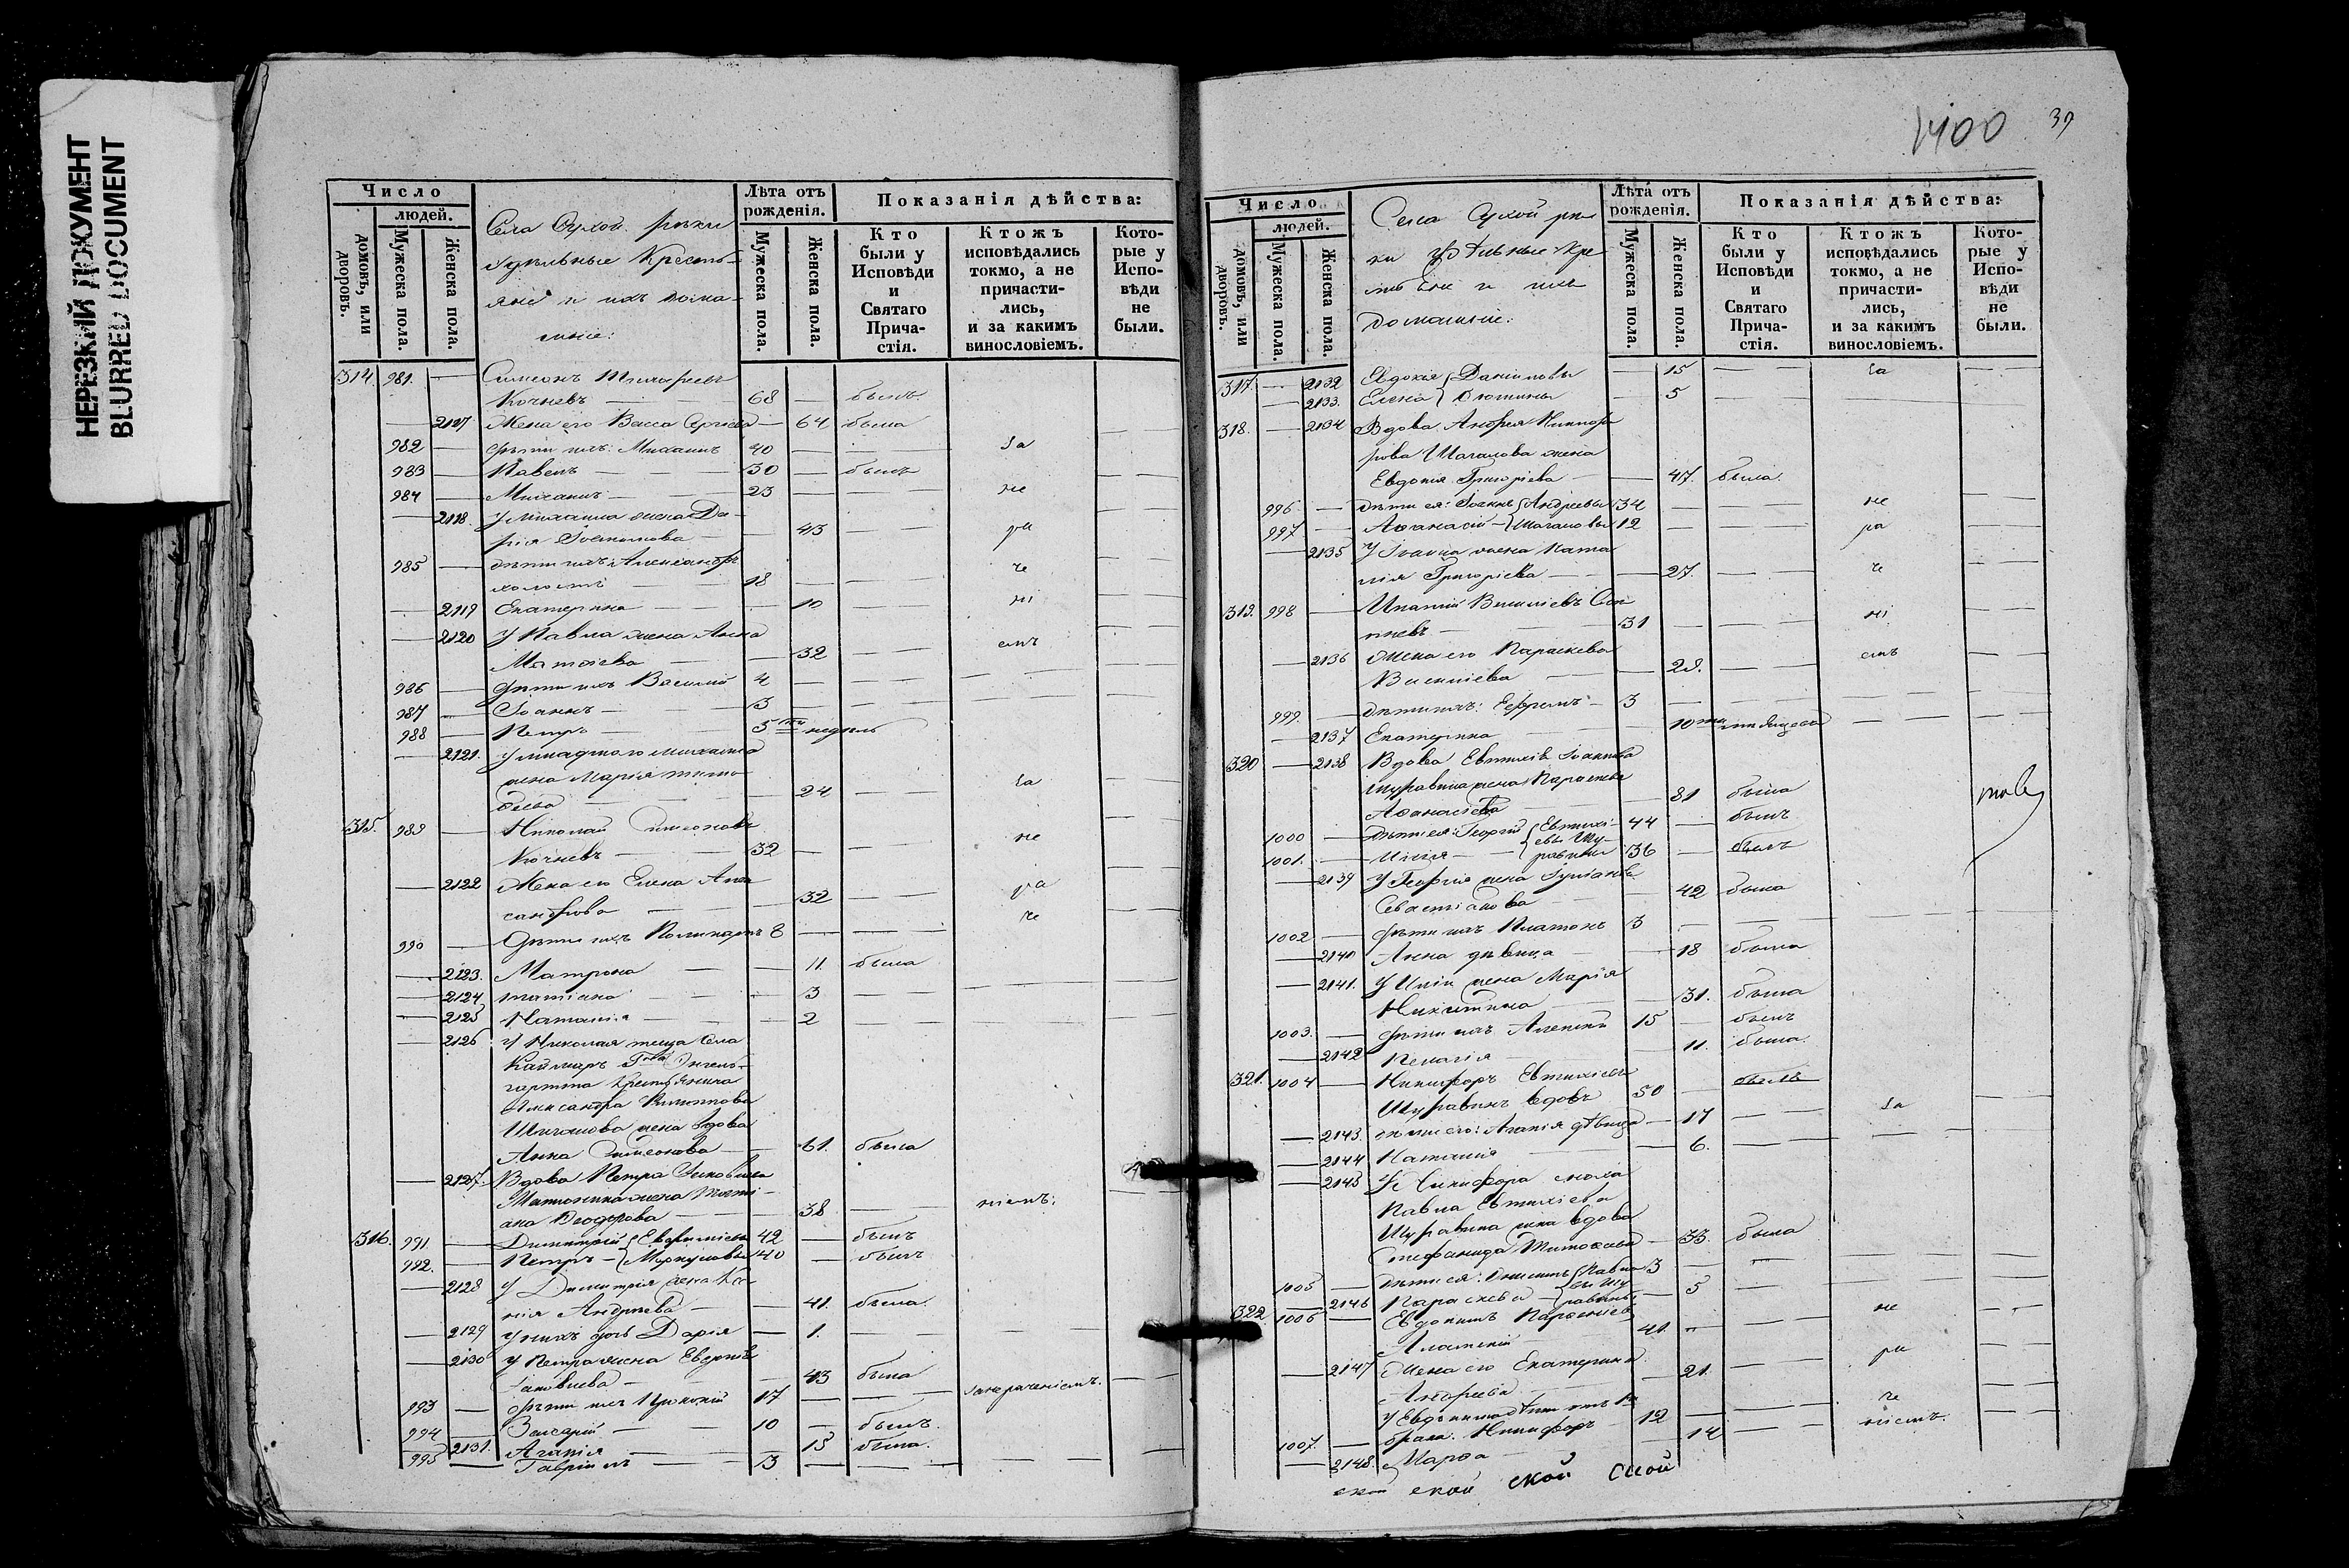 НЕРЕЗКИЙ ДОКУМЕНТ
BLURRED DOCUMENT
Число
людей.
домовъ, или дворовъ.
Мужеска пола.
Женска пола.
Села Сухой рѣки
удѣльные Кресть-
яне и ихъ дома-
шніе:
Лѣта отъ рожденія.
Мужеска пола.
Женска пола.
Показанія дѣйства:
Кто были у Исповѣди и Святаго Прича-стія.
Ктожъ исповѣдались токмо, а не причасти-лись, и за какимъ винословіемъ.
Кото-рые у Испо-вѣди не были.
314. 981. — Симеонъ
Кочневъ — 68 — былъ
— 2117 Жена его Васса — 64 была
982 — дѣти ихъ: Михаилъ 40 — — за
983 — Павелъ — 30 — былъ
984 — Михаилъ — 23 — — не
— 2118. У Михаила жена Да-
рія — 43 — ра
985 — дѣти ихъ: Александръ
холостъ — 18 — — че
— 2119 Екатерина — 10 — ні
— 2120 У Павла жена Анна
Матѳіева — 32 — емъ
986 — Дѣти ихъ Василій 4 — — —
987 — Іоаннъ — 3 — — —
988 — Петръ — 5ти недѣль
— 2121. У младшаго Михаила
жена Марія Тимо-
ѳеева — 24 — за
315. 989 — Николай Симеоновъ
Кочневъ — 32 — — не
— 2122 Жена его Елена Алек
сандрова — 32 — ра
че
990 — Дѣти ихъ Поликарпъ 8 — — —
— 2123. Матрона — — 11. была
— 2124 Татіана — — 3 — —
— 2125 Наталія — — 2 — —
— 2126 У Николая теща села
Каймаръ Гна Энгель-
гардта Крестьянина
Александра Филиппова
жена вдова
Анна Симеонова — 61. была
— 2127. Вдова Петра
жена Тати-
ана Ѳеодорова — 38 — ніемъ.
316. 991 — Димитрій Евфиміевы 42 — былъ
992. — Петръ — Меркуловы 40 — былъ
— 2128 У Димитрія жена Ксе
нія Андреева — 41. была.
— 2129 У нихъ дочь Дарія — 1. — — —
— 2130 У Петра жена Евдокія
Іаковлева — 43 была
993 — Дѣти ихъ Прокопій 17 — — за нераченіемъ.
994 — — 10 — былъ.
— 2131. Агапія — — 15 была.
995 — Гавріилъ — 3 — — —
1400 39
Число
людей.
домовъ, или дворовъ.
Мужеска пола.
Женска пола.
Села Сухой рѣ
ки удѣльные кре
стьяне и ихъ
домашніе:
Лѣта отъ рожденія.
Мужеска пола.
Женска пола.
Показанія дѣйства:
Кто были у Исповѣди и Святаго Прича-стія.
Ктожъ исповѣдались токмо, а не причасти-лись, и за какимъ винословіемъ.
Кото-рые у Испо-вѣди не были.
317. — 2132 Евдокія Даніиловы — 15 — — за
— 2133. Елена — 5 — —
318. — 2134 Вдова Андрея Никифо
рова Шагалова жена
Евдокія Григоріева — 47. была.
996 — дѣти ея: Іоаннъ Андреевы 34 — — не
997 — Аѳанасій — Шагаловы 12 — — ра
— 2135 У Іоанна жена Ната
лія Григоріева — 27. — че
319. 998 — Ипатій Василіевъ
31 — — ні
— 2136 Жена его Параскева
Василіева — 28. — емъ
999. — дѣти ихъ: Ефремъ — 3 — — —
— 2137 Екатерина — 10ти мѣсяцевъ — —
320 — 2138 Вдова Евтихія Іоаннова
Шуравина жена Параскева
Аѳанасіева — 81 была
1000 — Дѣти ея: Георгій Евтихі- 44 — былъ
евы Шу-
1001. — Илія — равины 36 — былъ
— 2139 У Георгія жена Іуліанія
Севастіанова — 42 была
1002 — Дѣти ихъ Платонъ 3 — —
— 2140 Анна дѣвица — 18 была
— 2141. У Иліи жена Марія
Никитина — 31. была
1003. — Дѣти ихъ Алексій 15 — былъ
— 2142 Пелагія — 11. была.
321. 1004 — Никифоръ Евтихіевъ
Шуравинъ вдовъ 50 — былъ
— 2143. дѣти его: Агапія дѣвица — 17 — — за
— 2144 Наталія — 6. — —
— 2145 У Никифора сноха
Павла Евтихіева
Шуравина жена вдова
Стефанида Тимоѳеева — 33. была
1005 — дѣти ея: Павло 3 — —
вы Шу
— 2146 Параскева — равины — 5 —
322 1006 — Евдокимъ
41. — не
— 2147 Жена его Екатерина
Андреева — 21. — ра
У Евдокима дѣти отъ 1го че
1007. — брака. Никифоръ 12 — — ніемъ.
— 2148. Марѳа — 14 —
ской ской ской